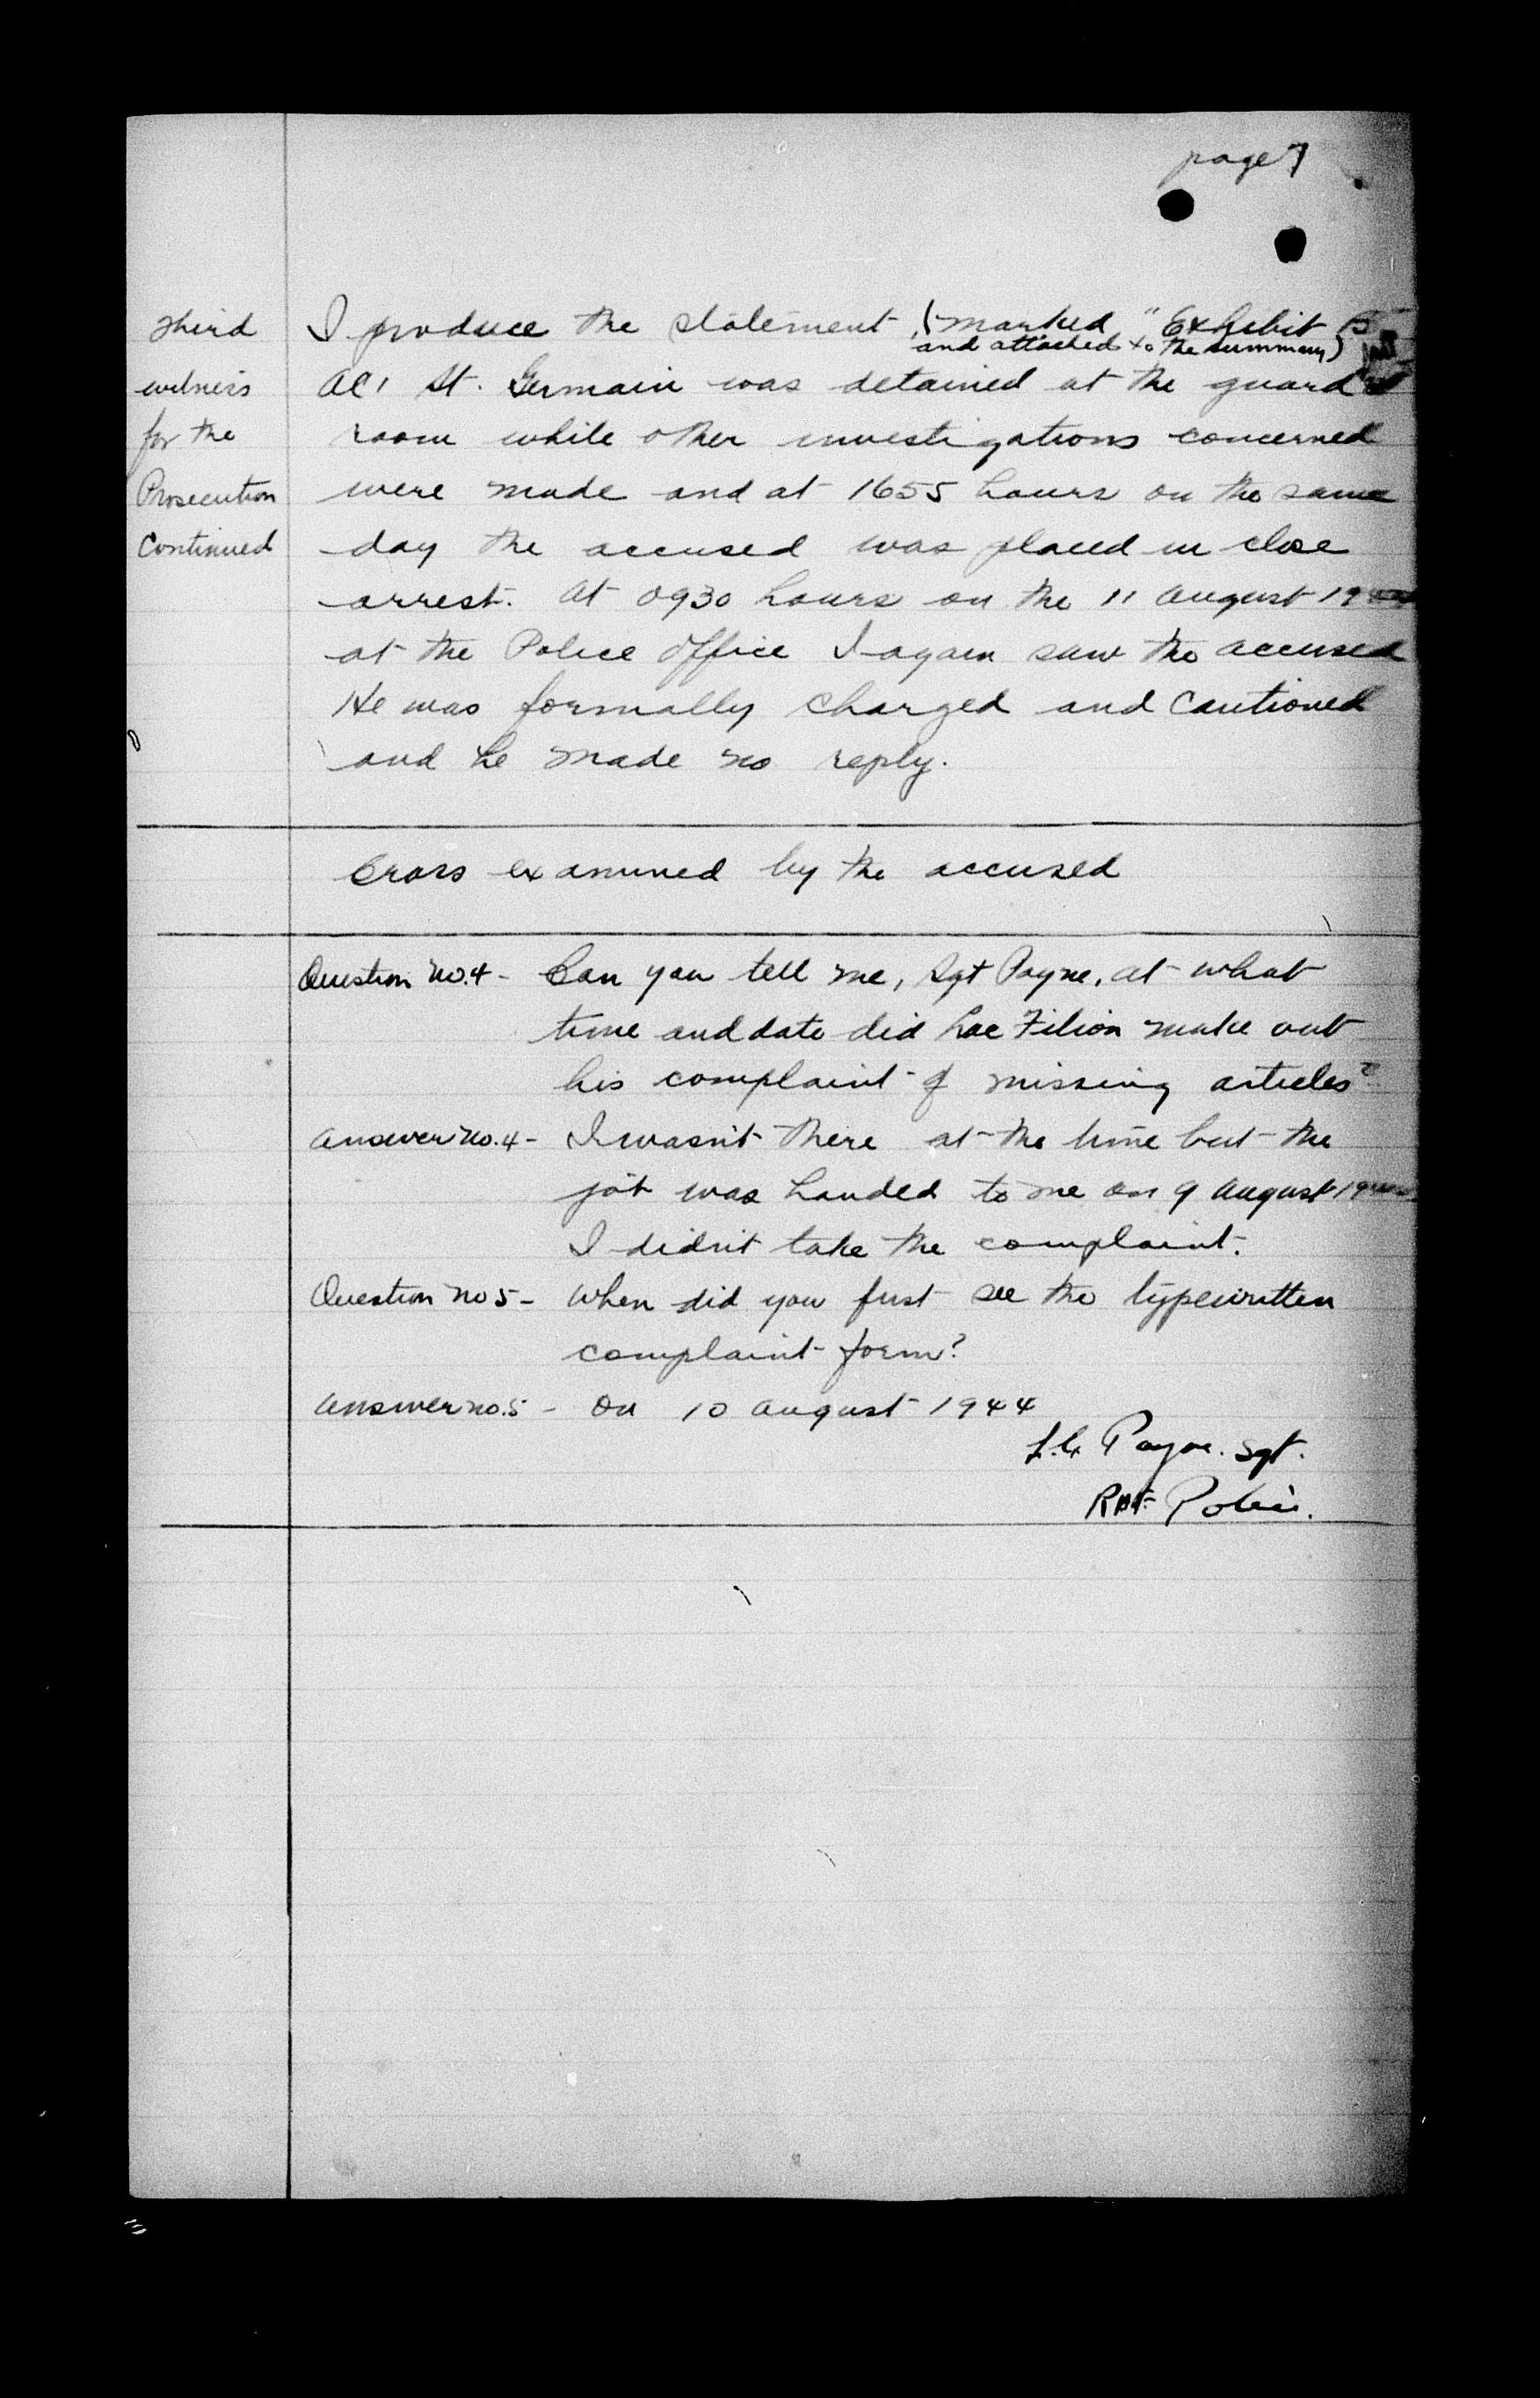 page 7
Third
witness
for the
Prosecution
Continued
I produce the statement, (marked "Exhibit
and attached to the summary)
AC1 St. Germain was detained at the guard
room while other investigations concerned
were made and at 1655 hours on the same
day the accused was placed in close
arrest. At 0930 hours on the 11 August 19
at the Police Office I again saw the accused
He was formally charged and cautioned
and he made no reply.
Cross examined by the accused
Question No.4 - Can you tell me, Sgt Payne, at what
time and date did Lac Filion make out
his complaint of missing articles?
Answer No.4 - I wasn't there at the time but the
job was handed to me on 9 August 19
I didn't take the complaint.
Question No 5 - When did you first see the typewritten
complaint form?
Answer No.5 - On 10 August 1944
Payne. Sgt.
RAF Police.